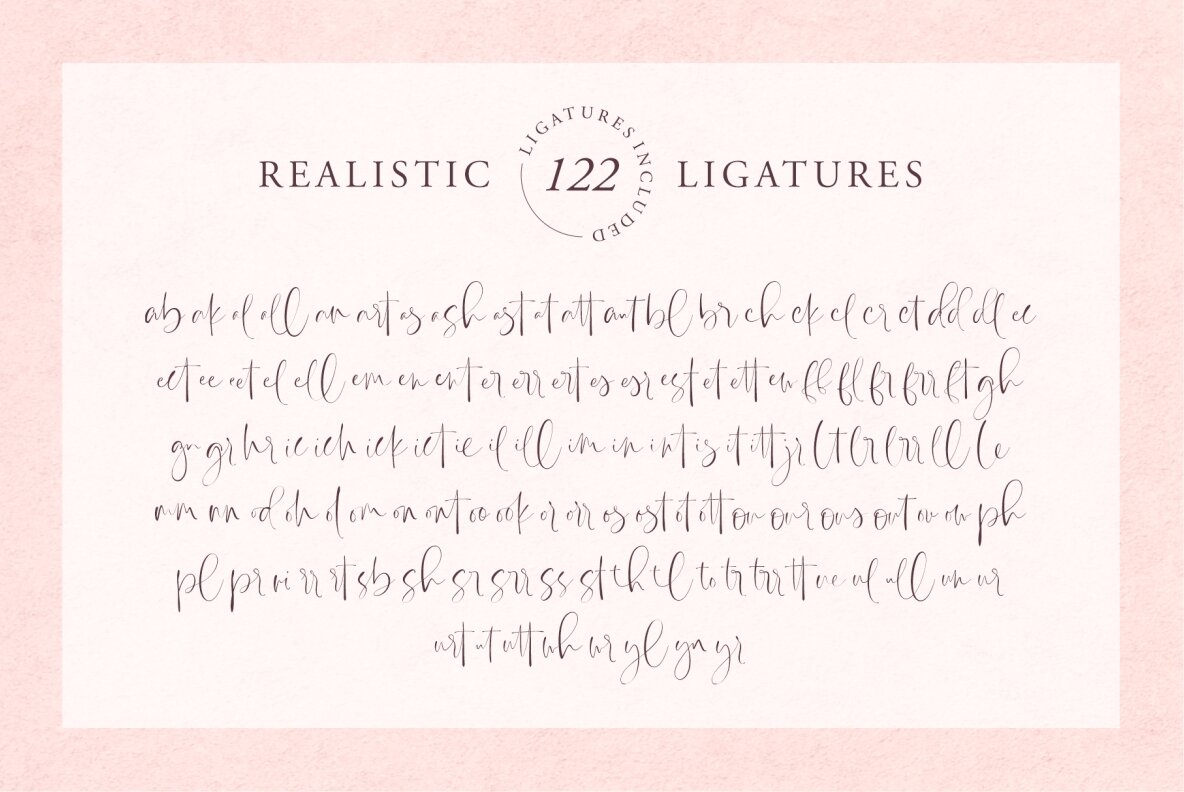 LIGATURES INCLUDED
REALISTIC 122 LIGATURES
ab ak al all an art as ash ast at att aut bl br ch ck cl cr ct dd dl ec
ect ee eet el ell em en ent er err ert es esr est et ett ew ff fl fr frr ft gh
gn gr hr ic ich ick ict ie il ill im in int is it itt jr lt lr lrr ll le
mm nn od oh ol om on ont oo ook or orr os ost ot ott ou our ous out ov ow ph
pl pr ri rr rt sb sh sr srr ss st th tl to tr trr tt ue ul ull un ur
urt ut utt wh wr yl yn yr